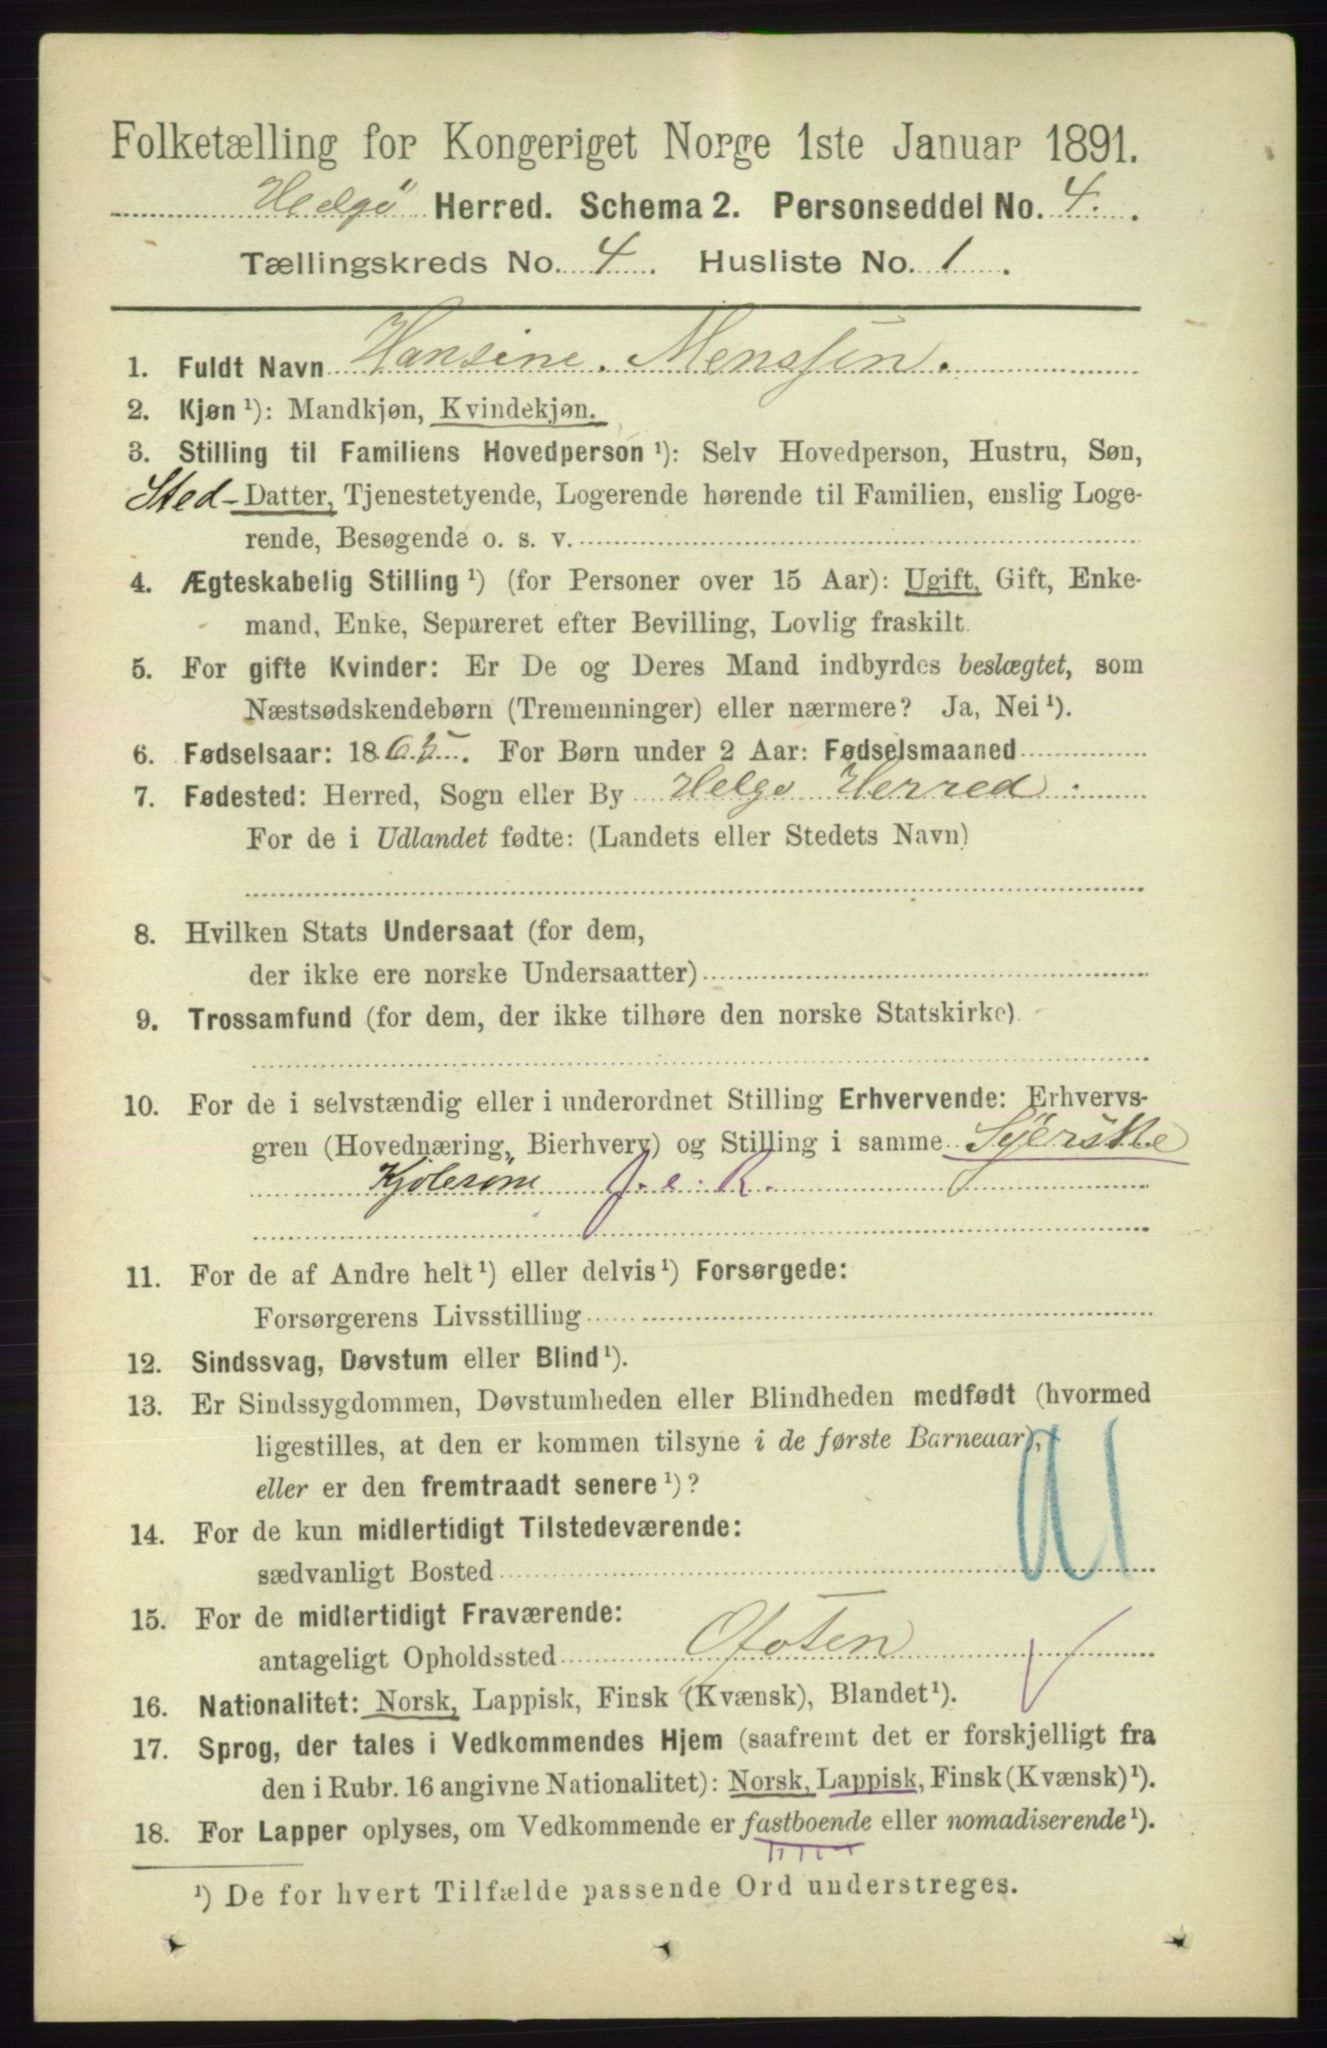 Folketælling for Kongeriget Norge 1ste Januar 1891.
Helgö Herred. Schema 2. Personseddel No. 4.
Tællingskreds No. 4. Husliste No. 1.
1. Fuldt Navn Hansine. Mensjin.
2. Kjøn ¹): Mandkjøn, Kvindekjøn.
3. Stilling til Familiens Hovedperson ¹): Selv Hovedperson, Hustru, Søn,
Sted-Datter, Tjenestetyende, Logerende hørende til Familien, enslig Loge-
rende, Besøgende o. s. v.
4. Ægteskabelig Stilling ¹) (for Personer over 15 Aar): Ugift, Gift, Enke-
mand, Enke, Separeret efter Bevilling, Lovlig fraskilt.
5. For gifte Kvinder: Er De og Deres Mand indbyrdes beslægtet, som
Næstsødskendebørn (Tremenninger) eller nærmere? Ja, Nei ¹).
6. Fødselsaar: 1865. For Børn under 2 Aar: Fødselsmaaned
7. Fødested: Herred, Sogn eller By Helgø Herred.
For de i Udlandet fødte: (Landets eller Stedets Navn)
8. Hvilken Stats Undersaat (for dem,
der ikke ere norske Undersaatter)
9. Trossamfund (for dem, der ikke tilhøre den norske Statskirke)
10. For de i selvstændig eller i underordnet Stilling Erhvervende: Erhvervs-
gren (Hovednæring, Bierhverv) og Stilling i samme Syerske
Kjolesöm
11. For de af Andre helt ¹) eller delvis ¹) Forsørgede:
Forsørgerens Livsstilling
12. Sindssvag, Døvstum eller Blind ¹).
13. Er Sindssygdommen, Døvstumheden eller Blindheden medfødt (hvormed
ligestilles, at den er kommen tilsyne i de første Barneaar),
eller er den fremtraadt senere ¹)?
14. For de kun midlertidigt Tilstedeværende:
sædvanligt Bosted
15. For de midlertidigt Fraværende:
antageligt Opholdssted Ofoten
16. Nationalitet: Norsk, Lappisk, Finsk (Kvænsk), Blandet ¹).
17. Sprog, der tales i Vedkommendes Hjem (saafremt det er forskjelligt fra
den i Rubr. 16 angivne Nationalitet): Norsk, Lappisk, Finsk (Kvænsk) ¹).
18. For Lapper oplyses, om Vedkommende er fastboende eller nomadiserende ¹).
¹) De for hvert Tilfælde passende Ord understreges.